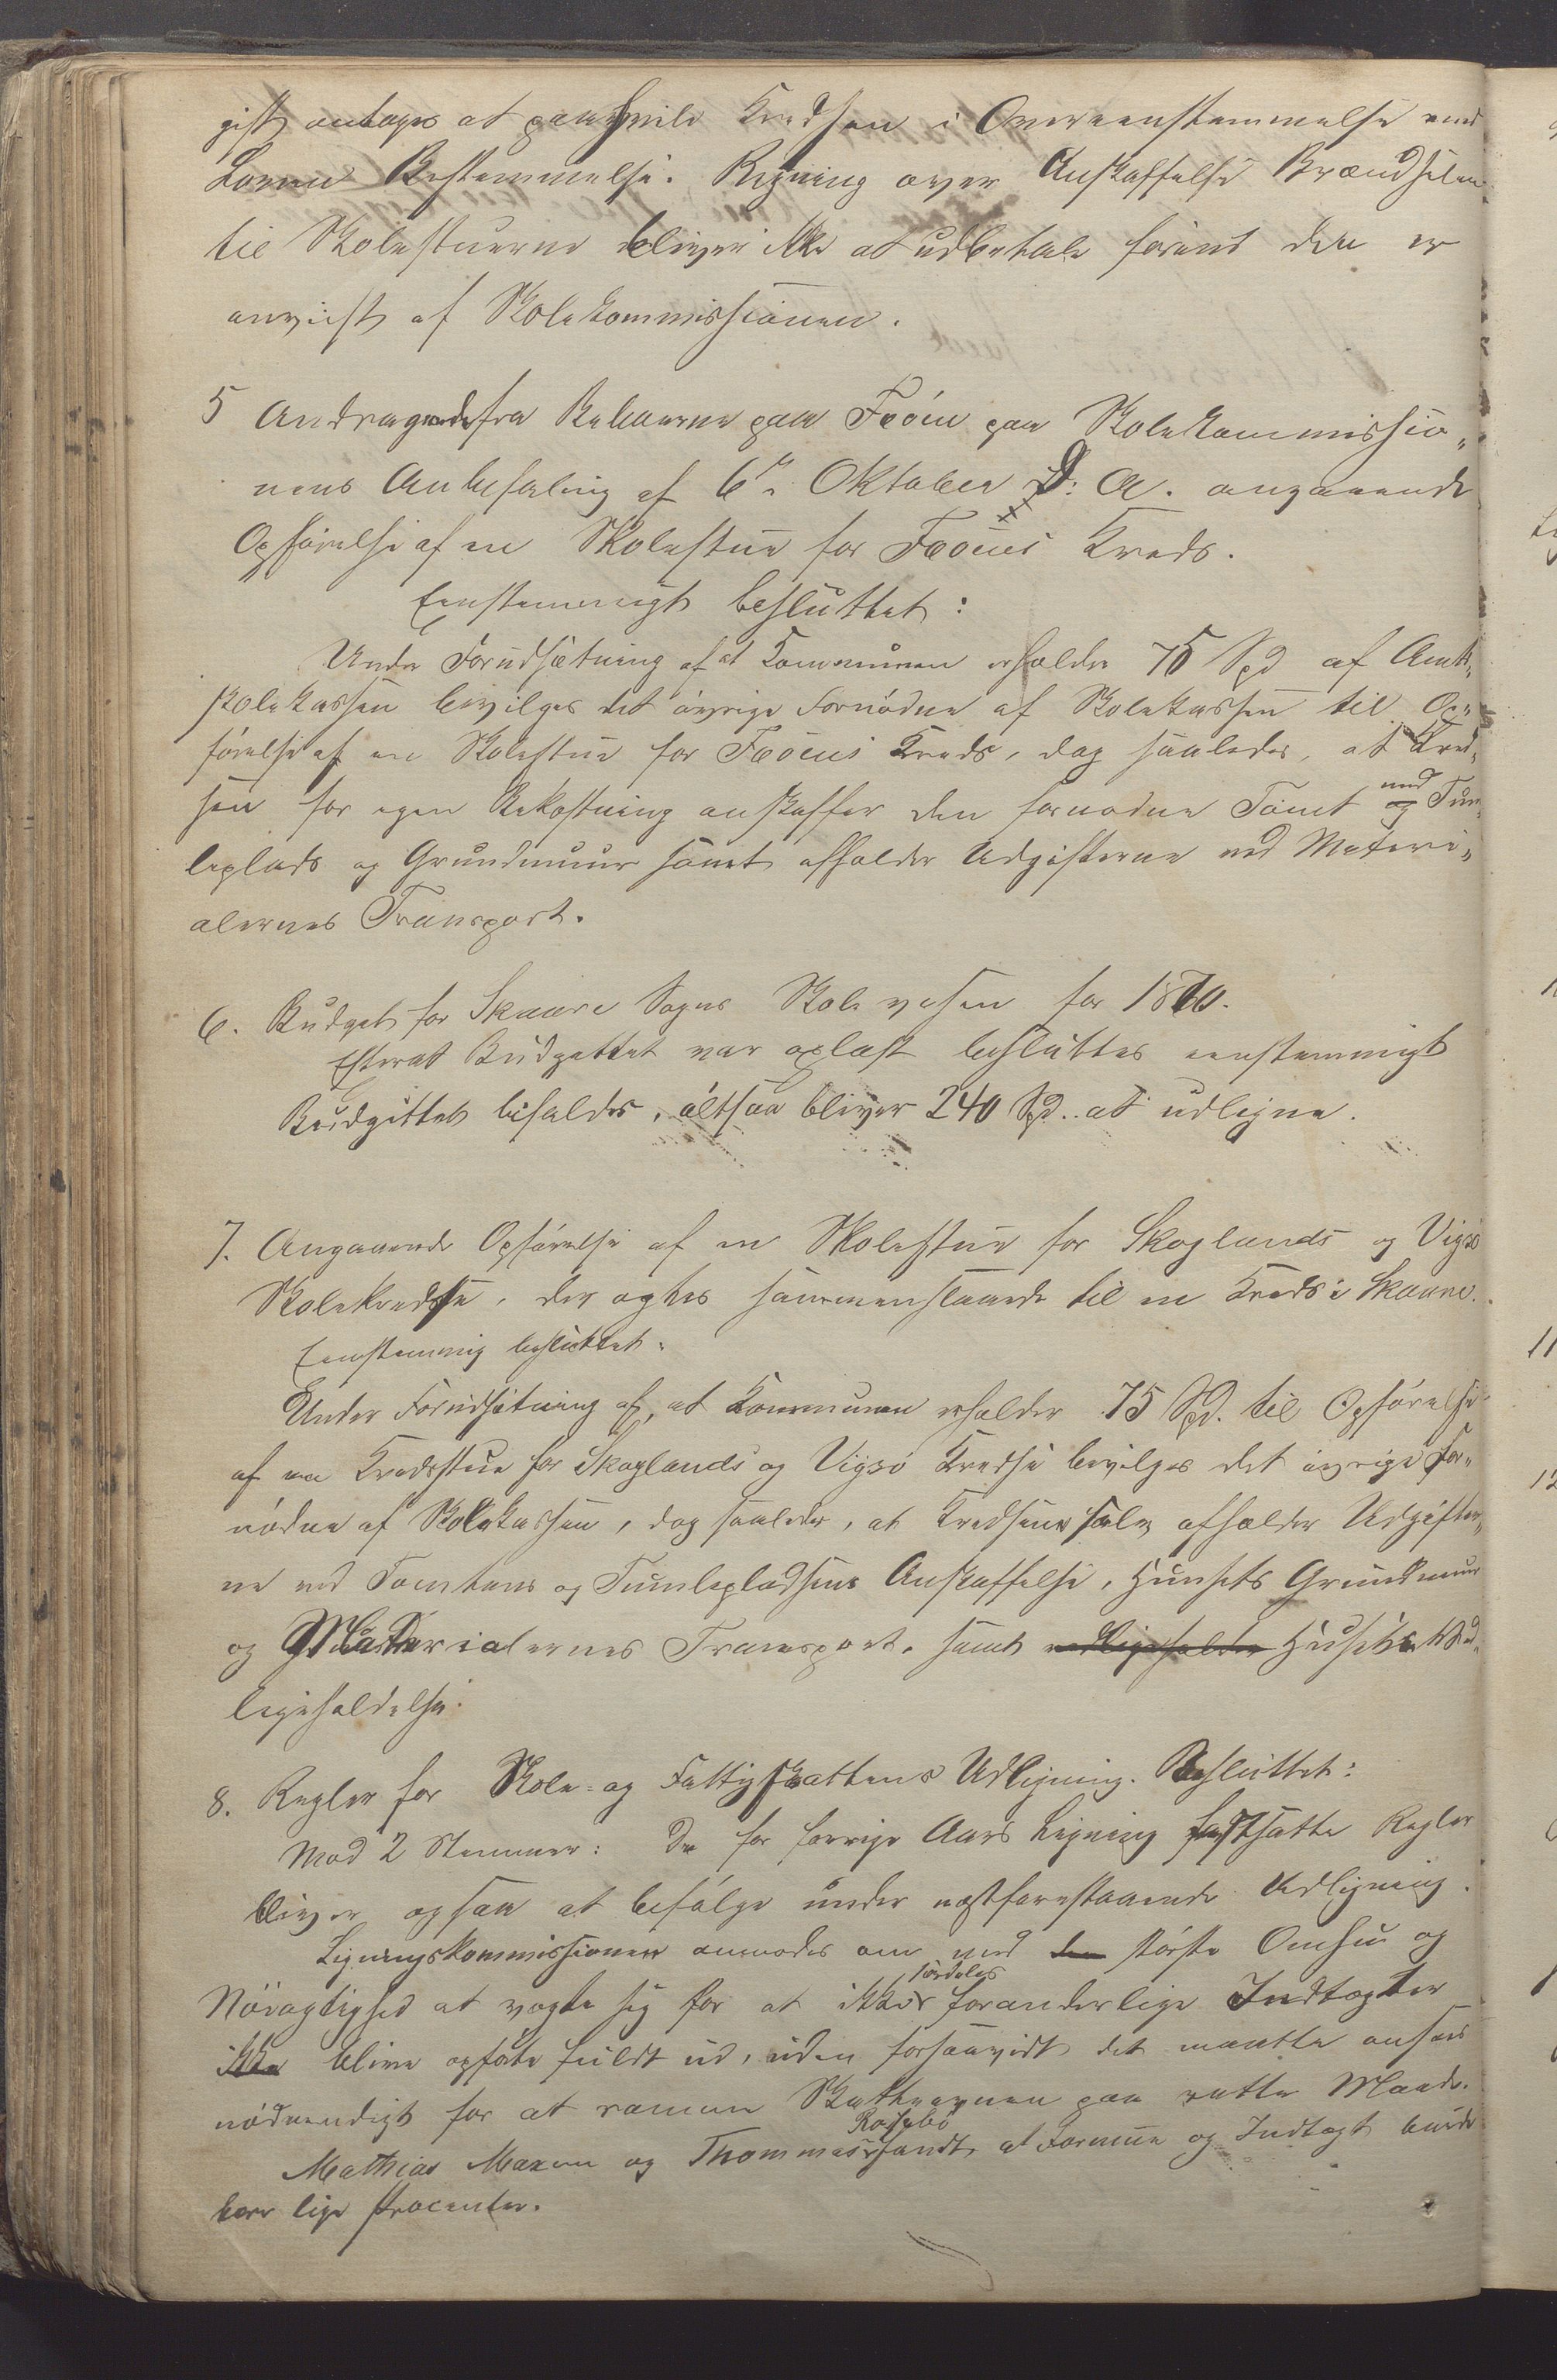 gift antages at paahvile Kredsen i Overeensstemmelse med
Lovens Bestemmelse. Regning over Anskaffelse Brændselen
til Skolestuerne bliver ikke at udbetale førend den er
anviist af Skolekommissionen.
5 Andragende fra Beboerne paa Feøen paa Skolekommissio„
nens Anbefaling af 6te Oktober d: A. angaaende
Opførelse af en Skolestue for Feøens Kreds.
Eenstemmigt besluttet:
Under Forudsætning af at Kommunen erholder 75 Spd af Amts„
skolekassen bevilges det øvrige Fornødne af Skolekassen til Op„
førelse af en Skolestue for Feøens Kreds, dog saaledes, at Kred„
sen for egen Bekostning anskaffer den fornødne Tomt med Tum„
leplads og Grundmuur samt afholder Udgifterne ved Materi„
alernes Transport.
6. Budget for Skaare Sogns Skolevæsen for 1860.
Efterat Budgettet var oplæst besluttes eenstemmigt
Budgettet bifaldes, altsaa bliver 240 Spd. at udligne.
7. Angaaende Opførelse af en Skolestue for Skoglands og Vigsø
Skolekredse, der agtes sammenslaaede til en Kreds i Skaare.
Eenstemmig besluttet:
Under Forudsætning af, at Kommunen erholder 75 Spd. til Opførelse
af en Kredsstue for Skoglands og Vigsø Kredse bevilges det øvrige For„
nødne af Skolekassen, dog saaledes, at Kredsene selv afholder Udgifter„
ne ved Tomtens og Tumlepladsens Anskaffelse, Huusets Grundmuur
og Materialernes Transport, samt vedligeholde Husets Ved„
ligeholdelse.
8. Regler for Skole- og Fattigskattens Udligning. Besluttet:
Mod 2 Stemmer: De for forrige Aars Ligning fastsatte Regler
bliver ogsaa at befølge under næstforestaaende Udligning.
Ligningskommissionen anmodes om med den største Omhu og
Nøiagtighed at vogte sig for at ikke særdeles foranderlige Indtægter
ikke blive opførte fuldt ud, uden forsaavidt det maatte ansees
nødvendigt for at ramme Skatteevnen paa rette Maade.
Mathias Maxen og Thommas Rossebø fandt, at Formue og Indtægt burde
bære lige Procenter.